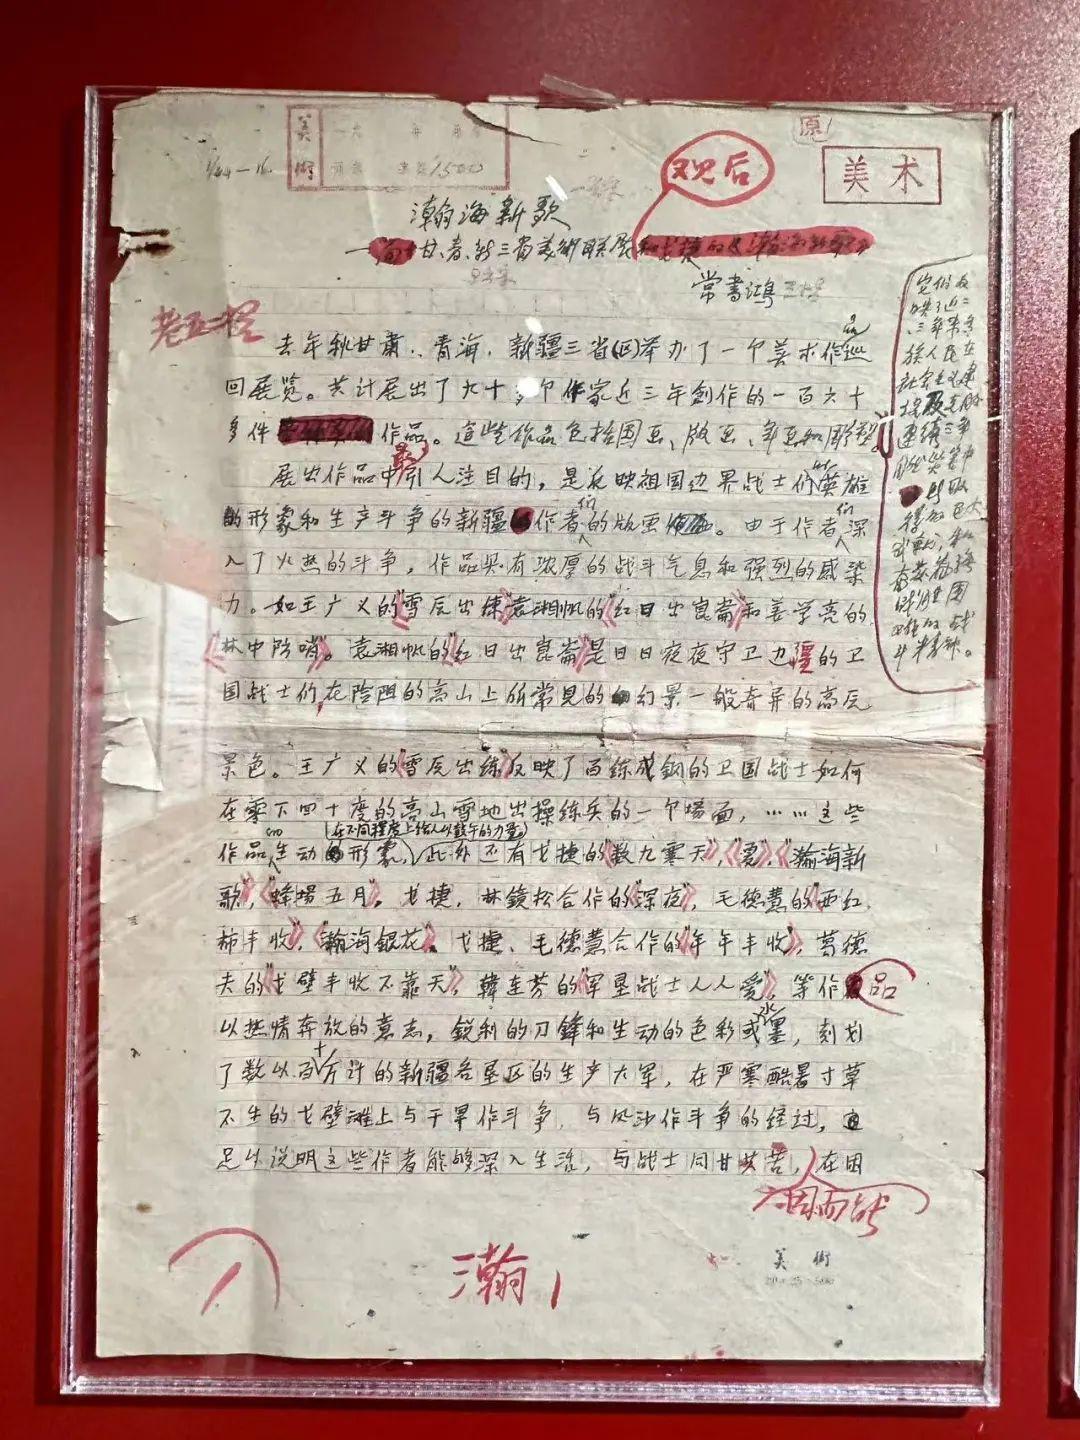 美術
1500
原
美术
观后
瀚海新歌
甘、青、新三省美術联展
常書鴻
老五号
去年秋甘肃、青海、新疆三省(区)举办了一个美术作品巡
回展览。共计展出了九十多个作家近三年創作的一百六十
多件作品。这些作品包括国画、版画、年画和雕塑。
展出作品中最引人注目的，是反映祖国边界战士们的英雄
的形象和生产斗争的新疆作者们的版画。由于作者们深
入了火热的斗争，作品具有浓厚的战斗气息和强烈的感染
力。如王广义的《雪辰出練》袁湘帆的《红日出崑崙》和姜学亮的
《林中防哨》。袁湘帆的《红日出崑崙》是日日夜夜守卫边疆的卫
国战士们，在险阻的高山上所常見的幻景一般奇异的高辰
景色。王广义的《雪辰出练》反映了百练成鋼的卫国战士如何
在零下四十度的高山雪地出操練兵的一个場面，……这些
(在不同程度上给人以鼓午的力量)
作品的生动的形象，此外还有戈捷的《数九寒天》，《瀚海新
歌》，《蜂場五月》。戈捷，林鏡松合作的《深夜》，毛德慧的《西红
柿丰收》，《瀚海銀花》。戈捷、毛德慧合作的《年年丰收》，葛德
夫的《戈壁丰收不靠天》，韓连芬的《军垦战士人人爱》，等作品
以热情奔放的意志，銳利的刀鋒和生动的色彩或水墨，刻划
了数以百十万计的新疆各垦区的生产大军，在严寒酷暑寸草
不生的戈壁滩上与干旱作斗争，与风沙作斗争的经过，
足以说明这些作者能够深入生活，与战士同甘共苦，在困
因而能
它们反
映了近二
三年来各
族人民在
社会主义建
设及克服
连续三年
自然灾害中
取
得的巨大
战胜困
难的战
斗精神。
瀚1
美術